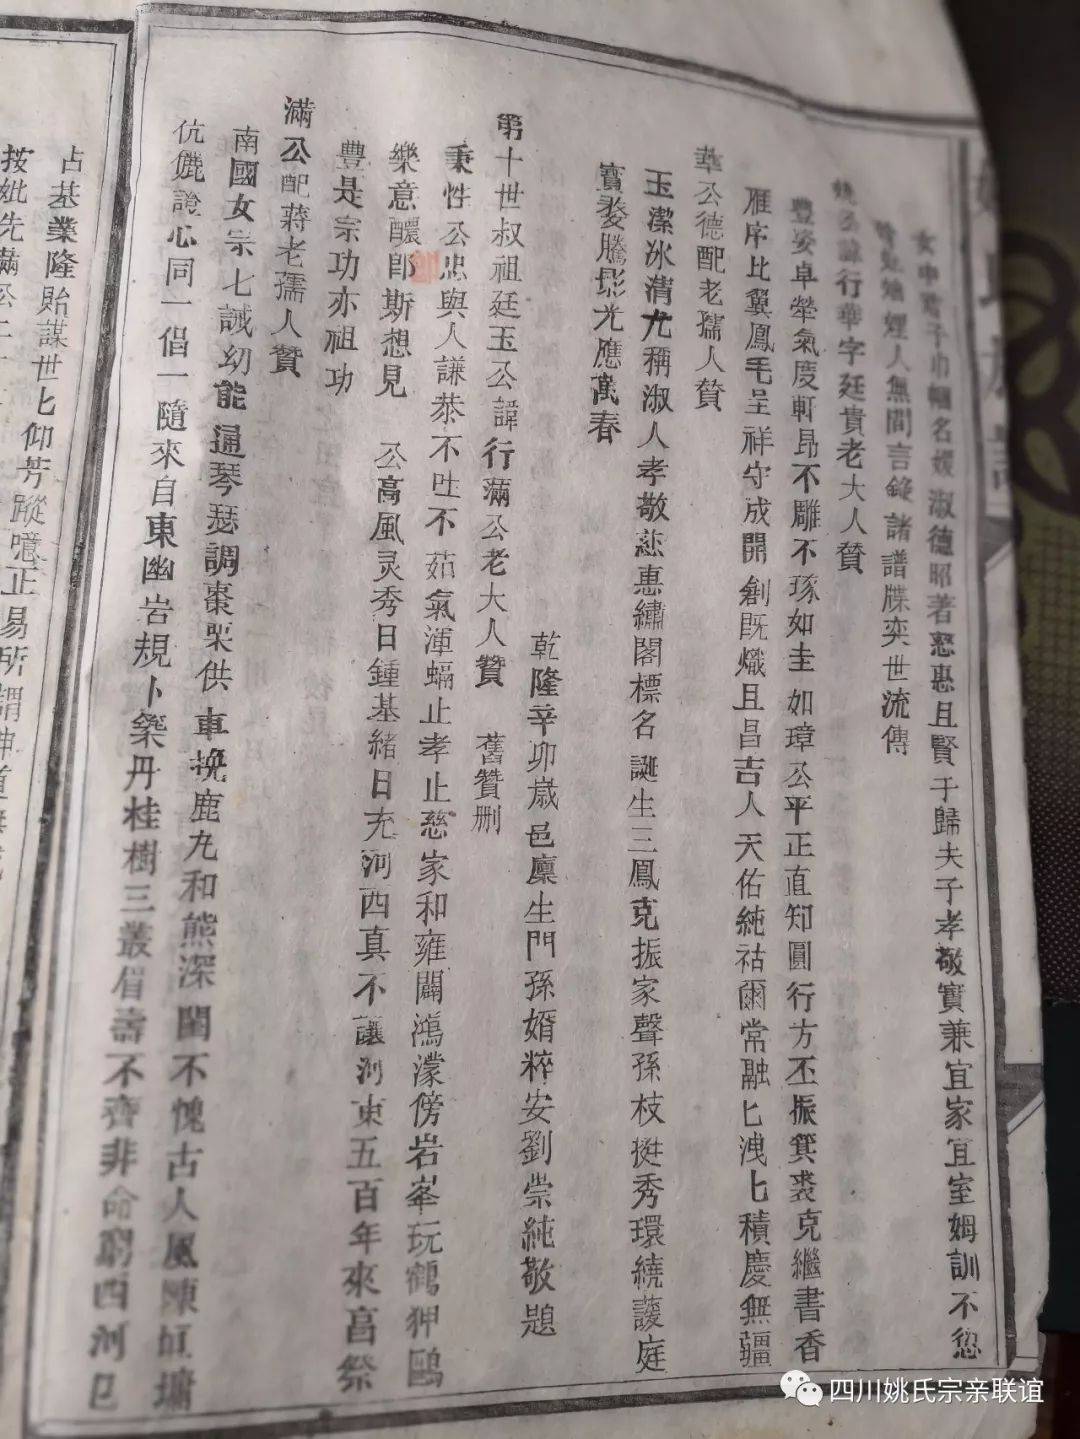 女中君子巾幗名媛淑德昭著慈惠且賢于歸夫子孝敬實兼宜家宜室姆訓不愆
人無間言錄諸譜牒奕世流傳
公諱行華字廷貴老大人贊
豐姿卓犖氣度軒昂不雕不琢如圭如璋公平正直知圓行方丕振箕裘克繼書香
雁序比翼鳳毛呈祥守成開創既熾且昌吉人天佑純祜爾常融匕洩匕積慶無疆
華公德配老孺人贊
玉潔冰清尤稱淑人孝敬慈惠繡閣標名誕生三鳳克振家聲孫枝挺秀環繞護庭
寶婺騰影光應萬春
乾隆辛卯歲邑廩生門孫婿粹安劉崇純敬題
第十世叔祖廷玉公諱行滿公老大人贊 舊贊刪
秉性公忠與人謙恭不吐不茹氣渾蝸止孝止慈家和雍闢鴻濛傍岩峯玩鶴狎鷗
樂意醲郎斯想見 公高風灵秀日鍾基緒日充河西真不讓河東五百年來昌祭
豊是宗功亦祖功
滿公配蔣老孺人贊
南國女宗七誡幼能通琴瑟調棗栗供車挽鹿丸和熊深閨不愧古人風陳垣墉
伉儷證心同一倡一隨來自東幽岩規卜築丹桂樹三叢眉壽不齊非命窮西河已
占基業隆貽謀世匕仰芳蹤噫止易所謂神道
按妣先滿公二十